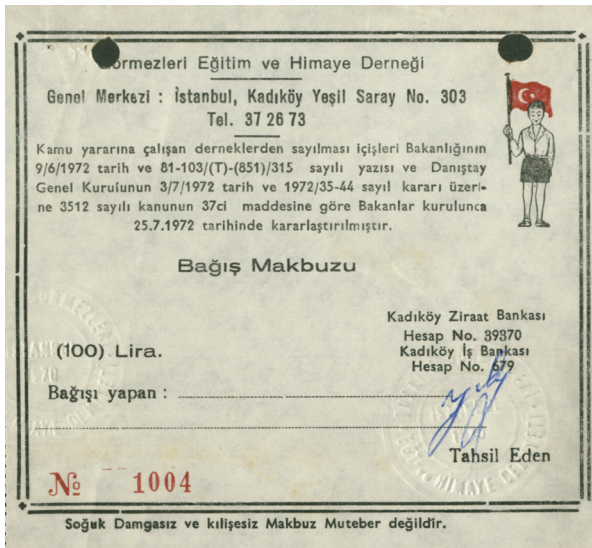 Görmezleri Eğitim ve Himaye Derneği
Genel Merkezi : İstanbul, Kadıköy Yeşil Saray No. 303
Tel. 37 26 73
Kamu yararına çalışan derneklerden sayılması içişleri Bakanlığının
9/6/1972 tarih ve 81-103/(T)-(851)/315 sayılı yazısı ve Danıştay
Genel Kurulunun 3/7/1972 tarih ve 1972/35-44 sayıl kararı üzeri-
ne 3512 sayılı kanunun 37ci maddesine göre Bakanlar kurulunca
25.7.1972 tarihinde kararlaştırılmıştır.
Bağış Makbuzu
Kadıköy Ziraat Bankası
Hesap No. 39370
Kadıköy İş Bankası
Hesap No. 679
(100) Lira.
Bağışı yapan :
Tahsil Eden
No 1004
Soğuk Damgasız ve kılişesiz Makbuz Muteber değildir.